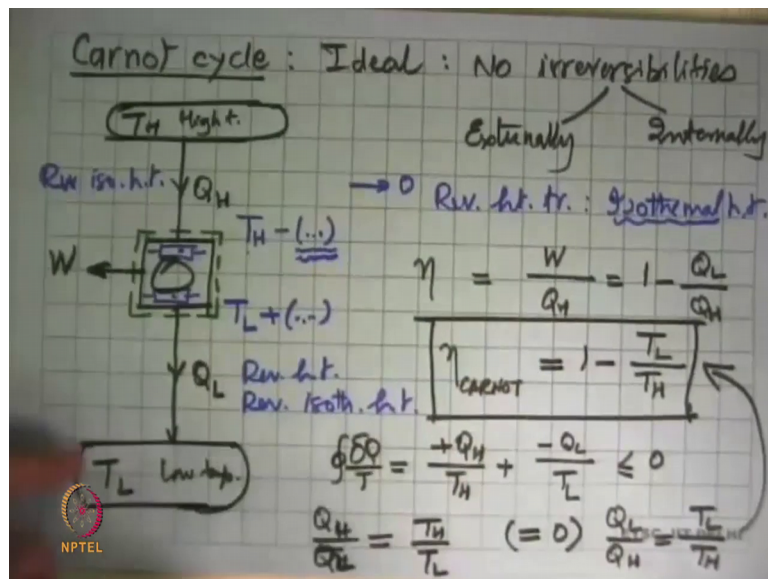 Carnot cycle : Ideal : No irreversibilities
Externally Internally
TH High t.
Rev iso. h.t. QH
→ 0 Rev. ht. tr. : Isothermal h.t.
TH - (...)
W
η = W / QH = 1 - QL / QH
TL + (...)
QL Rev. h.t.
Rev. isoth. h.t.
ηCARNOT = 1 - TL / TH
∮ δQ / T = +QH / TH + -QL / TL ≤ 0
TL Low temp.
QH / QL = TH / TL (= 0) QL / QH = TL / TH
NPTEL